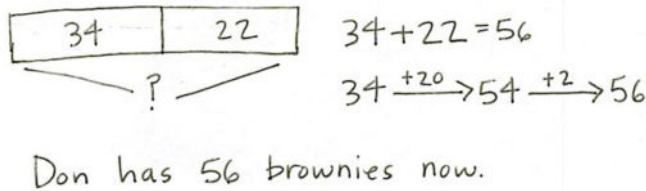 34 22 34+22=56
? 34 +20 54 +2 56
Don has 56 brownies now.